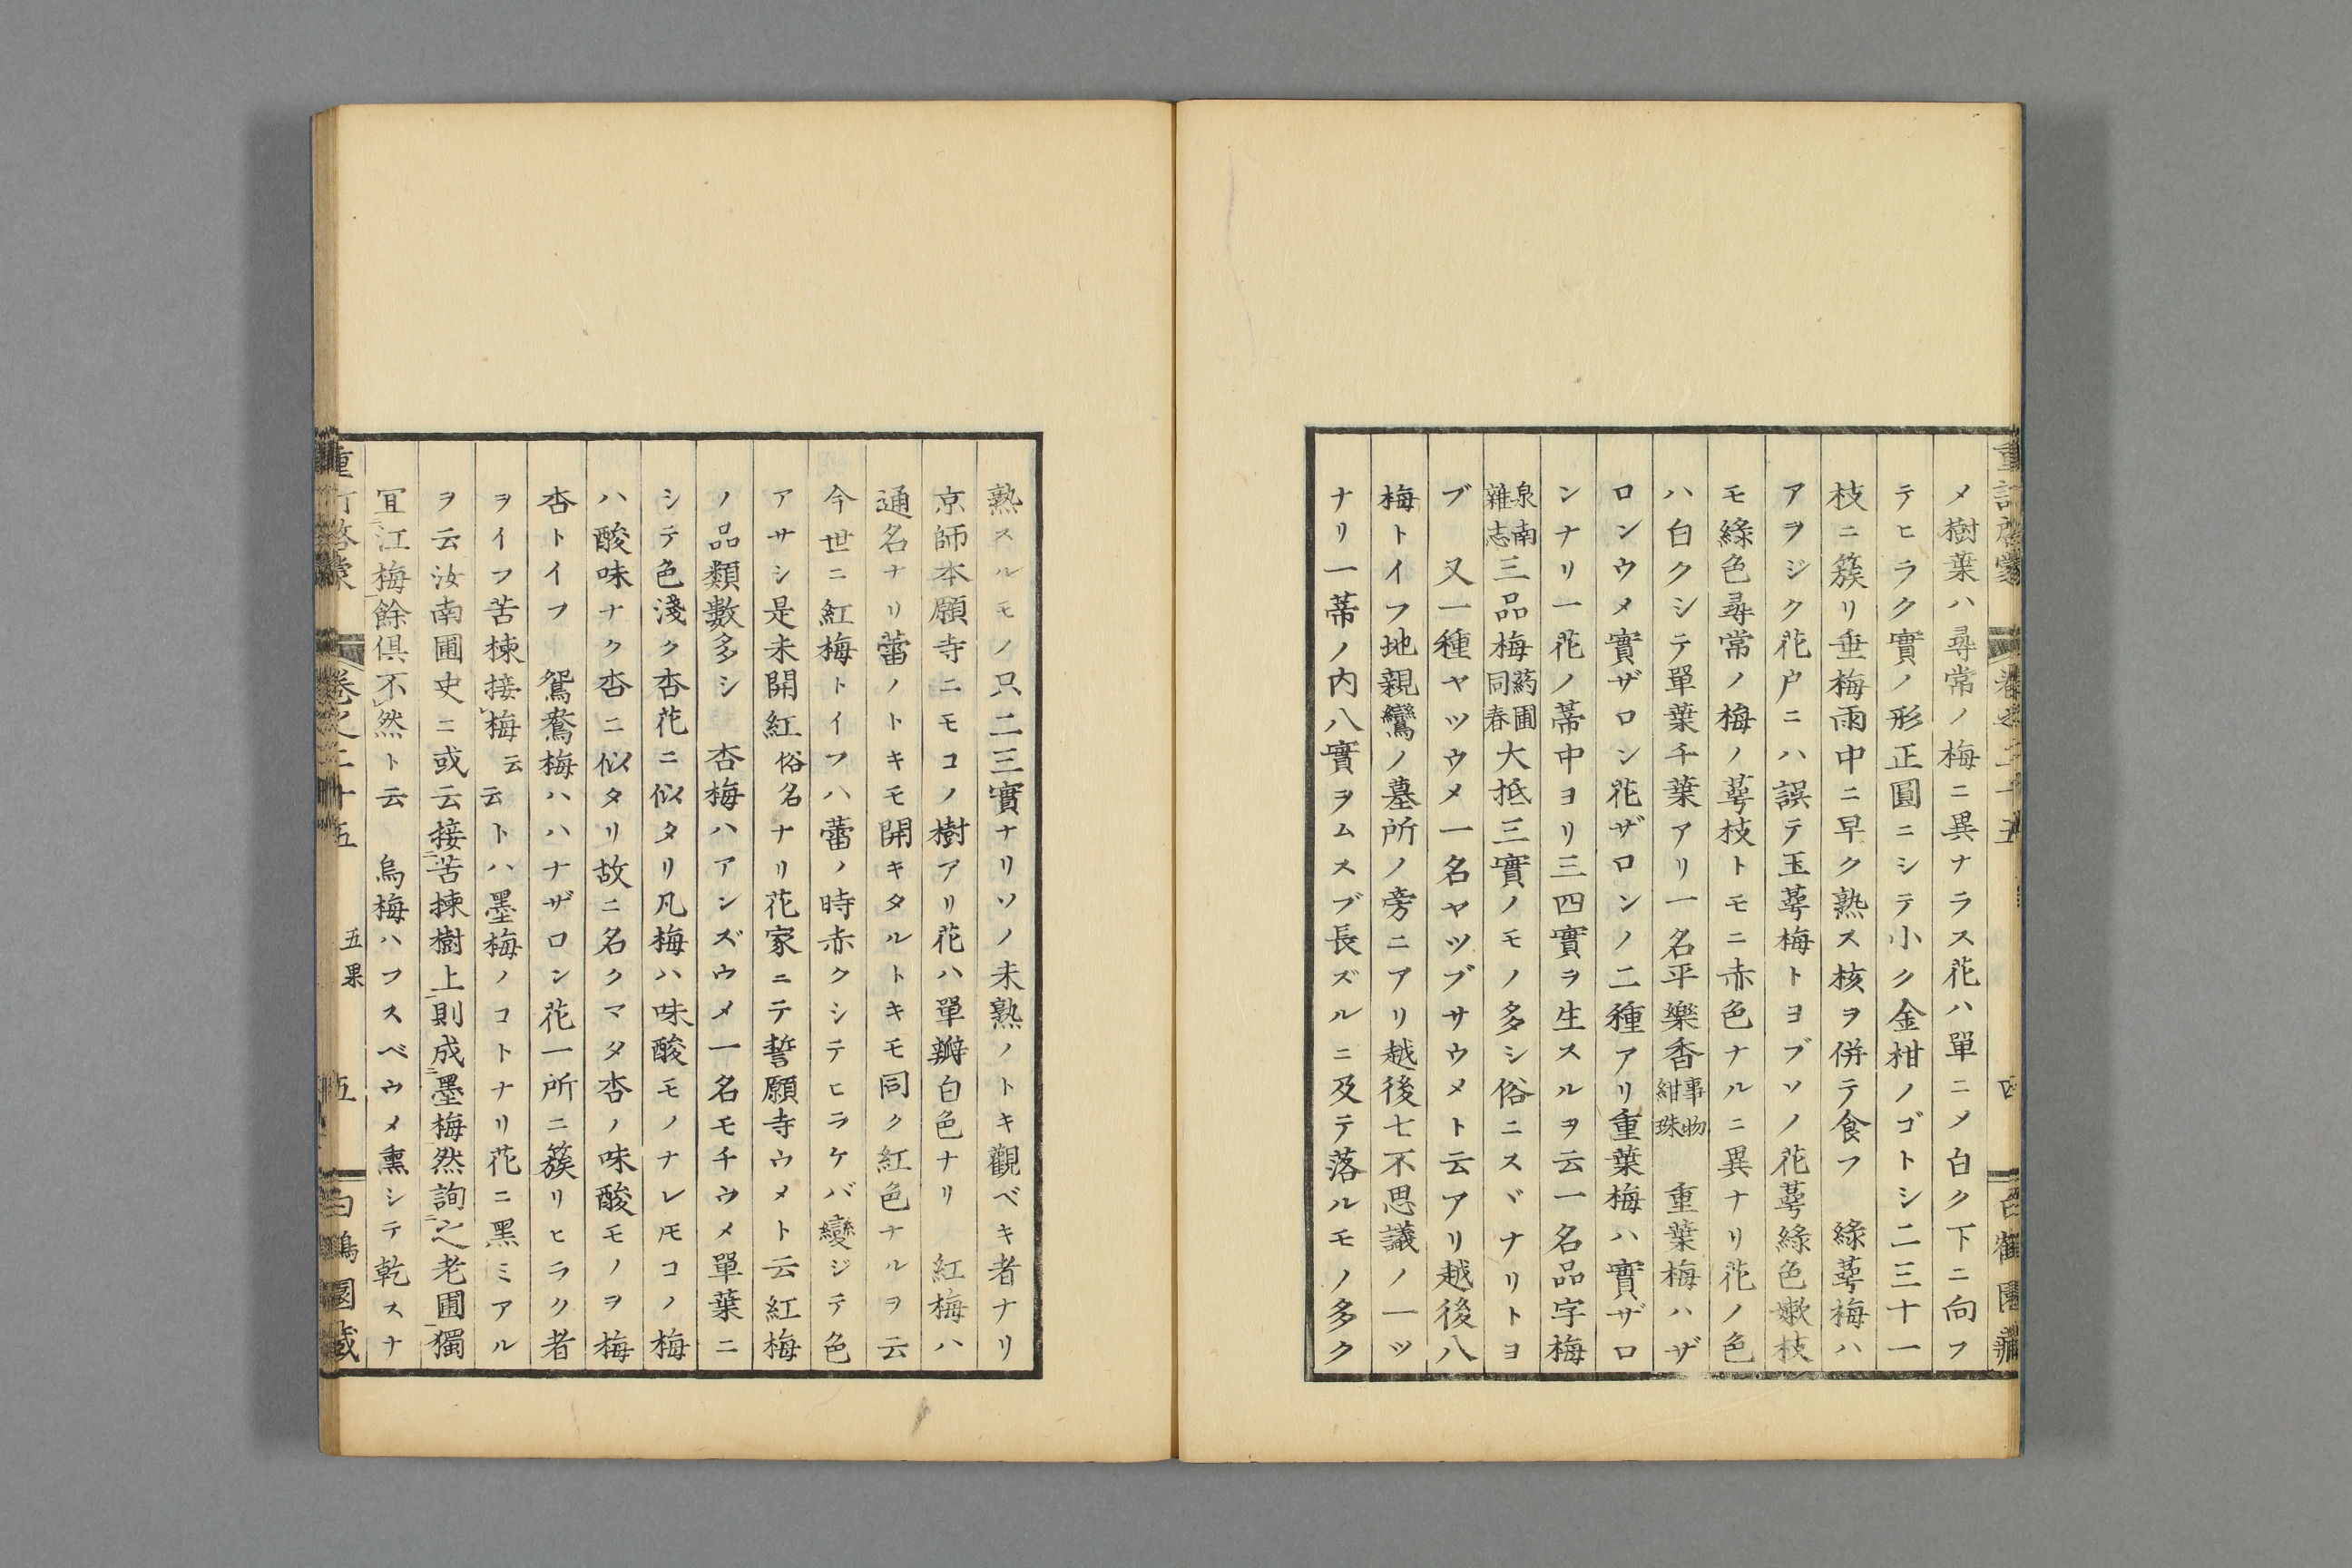 メ樹葉ハ尋常ノ梅ニ異ナラス花ハ單ニメ白ク下ニ向フ
テヒラク實ノ形正圓ニシテ小ク金柑ノゴトシ二三十一
枝ニ簇リ垂梅雨中ニ早ク熟ス核ヲ併テ食フ　綠萼梅ハ
アヲジク花戸ニハ誤テ玉萼梅トヨブソノ花萼綠色嫰枝
モ綠色尋常ノ梅ノ萼枝トモニ赤色ナルニ異ナリ花ノ色
ハ白クシテ單葉千葉アリ一名平樂香事物紺珠　重葉梅ハザ
ロンウメ實ザロン花ザロンノ二種アリ重葉梅ハ實ザロ
ンナリ一花ノ蒂中ヨリ三四實ヲ生スルヲ云一名品字梅
泉南雜志三品梅藥圃同春大抵三實ノモノ多シ俗ニスヾナリトヨ
ブ　又一種ヤツウメ一名ヤツブサウメト云アリ越後八
梅トイフ地親鸞ノ墓所ノ旁ニアリ越後七不思議ノ一ツ
ナリ一蒂ノ内八實ヲムスブ長ズルニ及テ落ルモノ多ク
熟スルモノ只二三實ナリソノ未熟ノトキ觀ベキ者ナリ
京師本願寺ニモコノ樹アリ花ハ單瓣白色ナリ　紅梅ハ
通名ナリ蕾ノトキモ開キタルトキモ同ク紅色ナルヲ云
今世ニ紅梅トイフハ蕾ノ時赤クシテヒラケバ變ジテ色
アサシ是未開紅俗名ナリ花家ニテ誓願寺ウメト云紅梅
ノ品類數多シ　杏梅ハアンズウメ一名モチウメ單葉ニ
シテ色淺ク杏花ニ似タリ凡梅ハ味酸モノナレ𪜈コノ梅
ハ酸味ナク杏ニ似タリ故ニ名クマタ杏ノ味酸モノヲ梅
杏トイフ　鴛鴦梅ハハナザロン花一所ニ簇リヒラク者
ヲイフ苦楝接梅云云トハ墨梅ノコトナリ花ニ黑ミアル
ヲ云汝南圃史ニ或云接苦楝樹上則成墨梅然詢之老圃獨
冝江梅餘俱不然ト云　烏梅ハフスベウメ熏シテ乾スナ
卷之二十五　五果　五